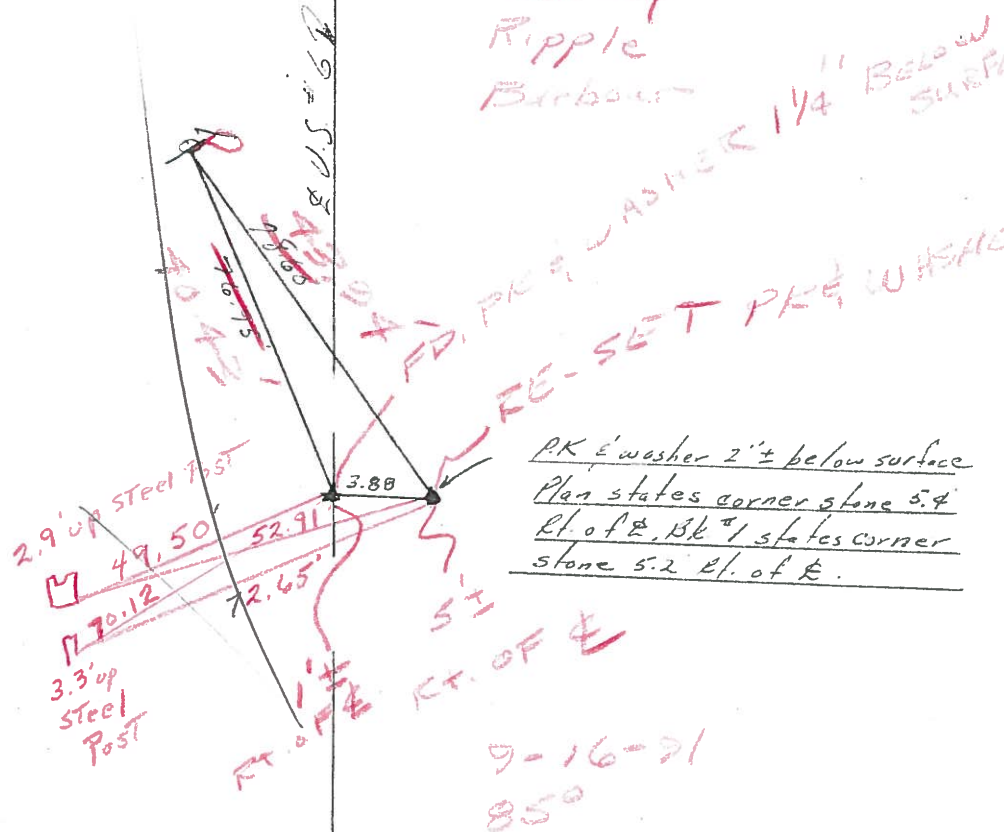 Ripple
Barbour
℄ U.S. 69
FD. PK & WASHER 1 1/4" BELOW
RE-SET PK & WASHE
78.60
76.75
3.88
P.K & washer 2"± below surface
Plan states corner stone 5.4
Rt. of ℄, Bk #1 states corner
stone 5.2 Rt. of ℄.
2.9' up steel Post
49.50'
52.91'
2.65'
3.3' up
steel
Post
1'±
Rt. of ℄
5'±
RT. OF ℄
9-16-91
85°